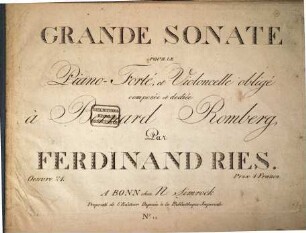 GRANDE SONATE
pour le
Piano-Forté, et Violoncelle obligé
composée et dediée
à Bernard Romberg,
Par
FERDINAND RIES.
Oeuvre 21. Prix 6 Francs
A BONN chez N. Simrock
Propriété de l'Editeur Déposée à la Bibliothèque Impériale
N.º